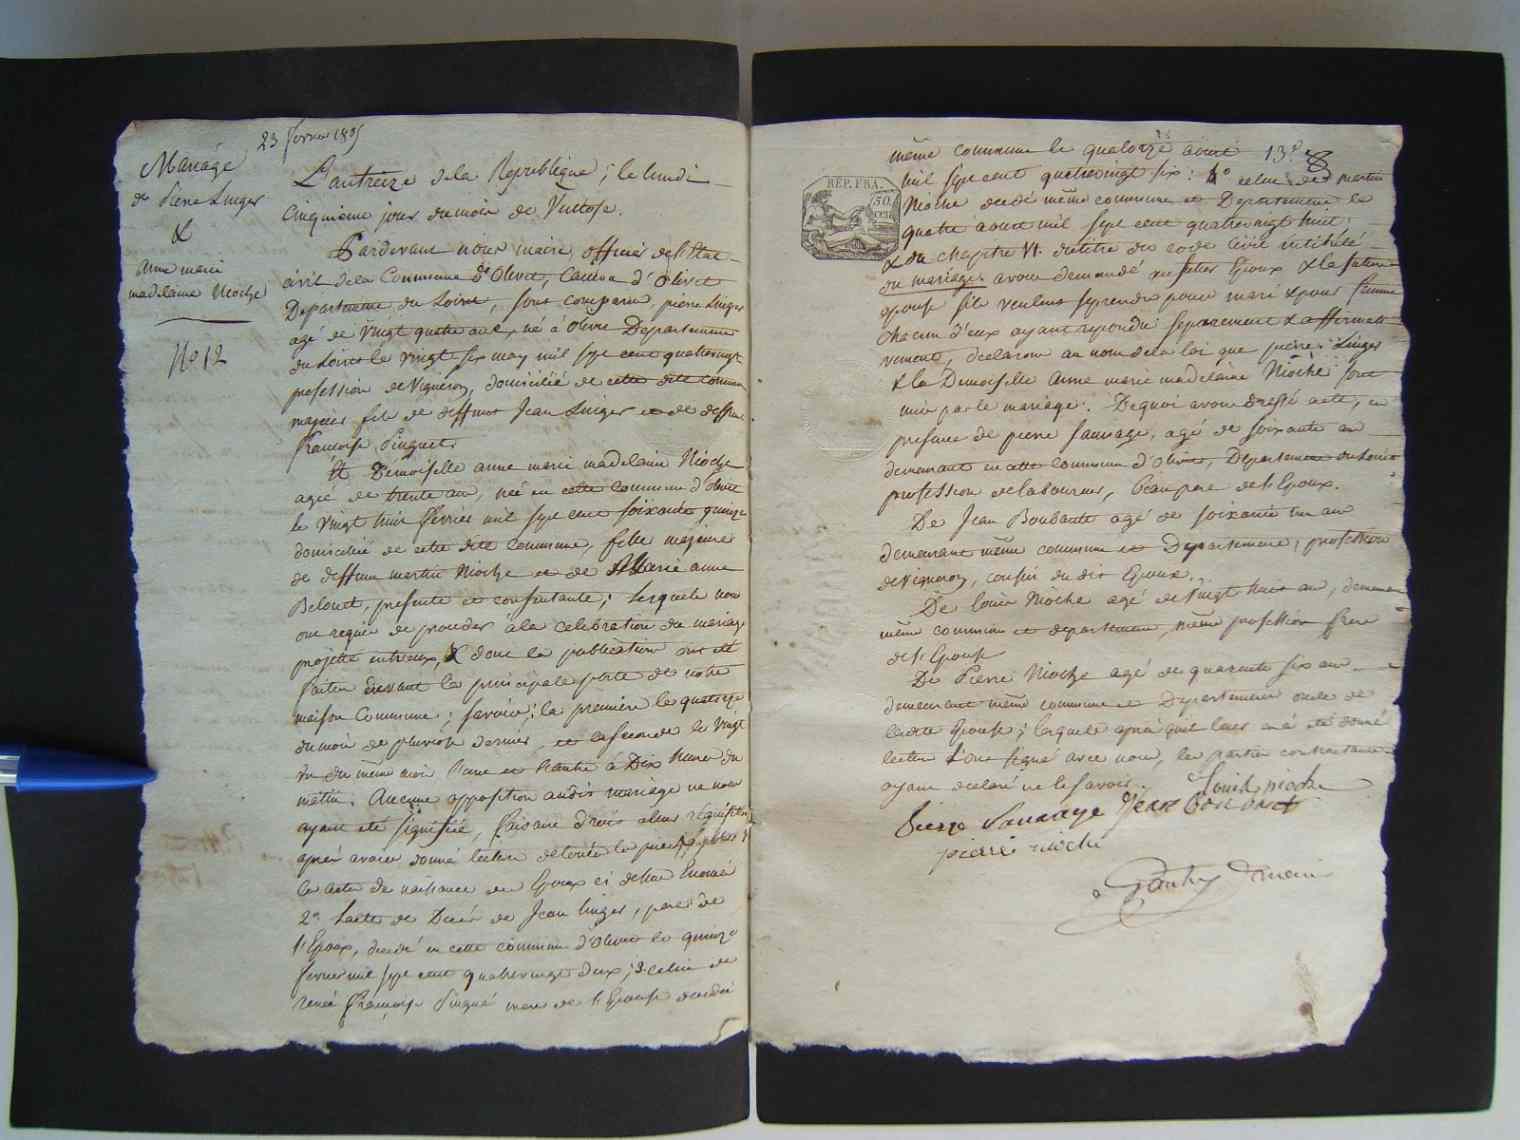 23 fevrier 1805
Mariage
de Pierre Linger
&
Anne marie
madelaine Nioche
No 12
L'an treize de la Republique ; le lundi
Cinquieme jour du mois de Ventose.
Pardevant nous maire officier de l'Etat
civil de la Commune d'Olivet, Canton d'Olivet
Departement du Loiret, sont comparu, pierre Linger
agé de vingt quatre ans, né à Olivet Departement
du Loiret le vingt six may mil sept cent quatrevingt
profession de Vigneron, domicilié de cette dite commune
majeur fils de deffunt Jean Linger et de deffunte
françoise Pinguet.
Et Demoiselle anne marie madelaine Nioche
agée de trente ans, née en cette commune d'Olivet
le vingt huit fevrier mil sept cent soixante quinze
domiciliée de cette dite commune, fille majeure
de deffunt martin Nioche et de Marie anne
Belouet, presente et consentante ; lesquels nous
ont requis de proceder à la celebration du mariage
projetté entreeux, & dont les publications ont été
faites devant la principale porte de notre
maison Commune ; savoir : la premiere le quatorze
du mois de pluviose dernier, et la seconde le vingt
un du même mois l'une et l'autre à Dix heures du
matin. Aucune opposition audit mariage ne nous
ayant été signifiée, faisant droit a leur requisition
après avoir donné lecture de toutes les pieces
les actes de naissance des Epoux ci dessus Enoncé
2o l'acte de Deces de Jean linger, pere de
l'Epoux, decedé en cette commune d'Olivet le quinze
fevrier mil sept cent quatrevingt deux ; 3o celui de
françoise Pingué mere de l'Epouse decedée
même commune le quatorze aout 13e
8
REP. FRA.
50
mil sept cent quatrevingt six : 4o celui de martin
Nioche decedé même commune et Departement le
quatre aout mil sept cent quatrevingt huit
& du chapitre VI. du titre du code Civil intitulé
du mariage. avons demandé au futur Epoux & la future
epouse s'ils veulent se prendre pour mari & pour femme
chacun d'eux ayant repondu separement & affirmati
vement, declarons au nom de la loi que pierre Linger
& la Demoiselle Anne marie madelaine Nioche sont
unis par le mariage. De quoi avons dressé acte, en
presence de pierre sauvage, agé de soixante ans
demeurant en cette commune d'Olivet, Departement du Loiret
profession de laboureur, beau pere de l'Epoux.
De Jean Boubault agé de soixante un ans
demeurant même commune et Departement ; profession
de Vigneron, cousin du dit Epoux.
De louis Nioche agé de vingt huit ans, demeurant
même commune et departement, même profession frere
de l'Epouse
De Pierre Nioche agé de quarante six ans
demeurant même commune et Departement oncle de
ladite Epouse ; lesquels après qu'il leur en a été donné
lecture l'ont signé avec nous, les parties contractantes
ayant declaré ne le savoir. Louis nioche
Pierre Sauvage Jean Boubault
pierre nioche